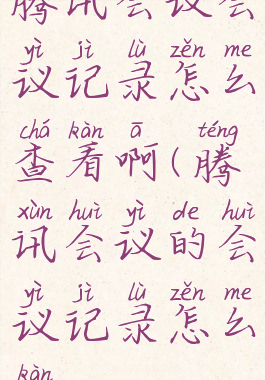 腾讯会议会
yì jì lù zěn me
议记录怎么
chá kàn ā téng
查看啊(腾
xùn huì yì de huì
讯会议的会
yì jì lù zěn me
议记录怎么
kàn